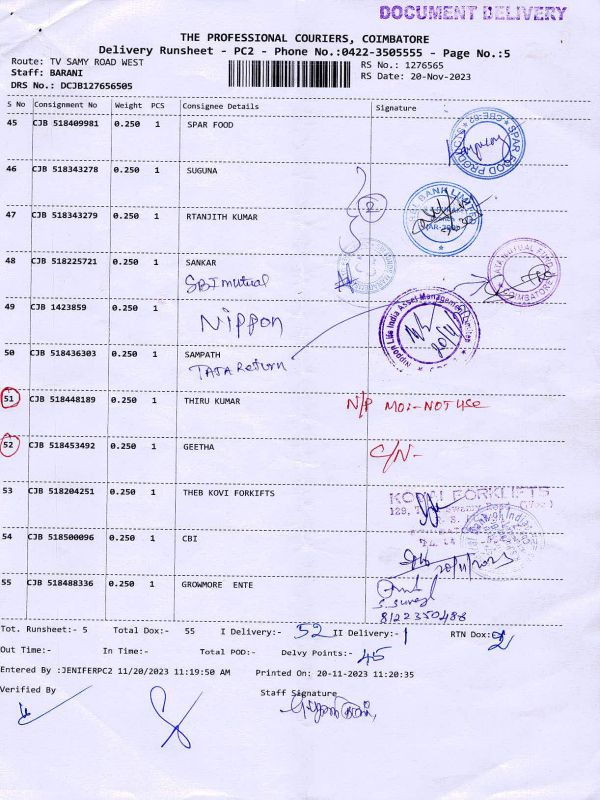 DOCUMENT DELIVERY
THE PROFESSIONAL COURIERS, COIMBATORE
Delivery Runsheet - PC2 - Phone No.:0422-3505555 - Page No.:5
Route: TV SAMY ROAD WEST
RS No.: 1276565
Staff: BARANI
RS Date: 20-Nov-2023
DRS No.: DCJB127656505
S No Consignment No Weight PCS Consignee Details Signature
45 CJB 518409981 0.250 1 SPAR FOOD
SPAR FOOD PRODUCTS CBE-02
46 CJB 518343278 0.250 1 SUGUNA
BANK LIMITED
47 CJB 518343279 0.250 1 RTANJITH KUMAR
48 CJB 518225721 0.250 1 SANKAR
SBI mutual
TATA MUTUAL FUND COIMBATORE
49 CJB 1423859 0.250 1
Nippon
Nippon Life India Asset Management
20/11
50 CJB 518436303 0.250 1 SAMPATH
TATA Return
51 CJB 518448189 0.250 1 THIRU KUMAR
N/P MOI-NOT USE
52 CJB 518453492 0.250 1 GEETHA
C/N-
53 CJB 518204251 0.250 1 THEB KOVI FORKIFTS
FORKLIFTS
129,
54 CJB 518500096 0.250 1 CBI
20/11/2023
55 CJB 518488336 0.250 1 GROWMORE ENTE
S. Suresh
8122350488
Tot. Runsheet:- 5 Total Dox:- 55 I Delivery:- 52 II Delivery:- 1 RTN Dox:- 2
Out Time:- In Time:- Total POD:- Delvy Points:- 45
Entered By :JENIFERPC2 11/20/2023 11:19:50 AM Printed On: 20-11-2023 11:20:35
Verified By
Staff Signature